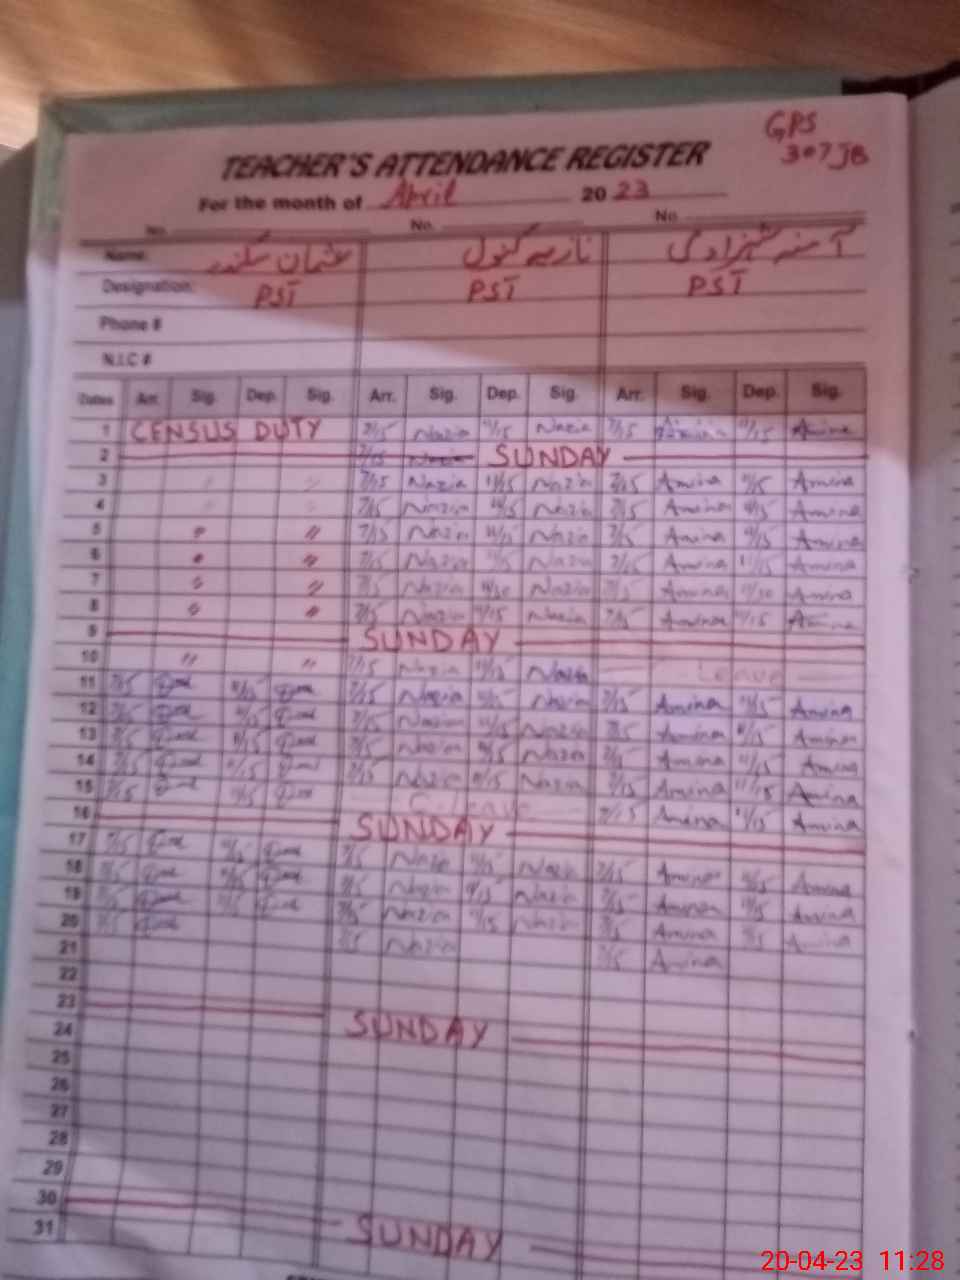 GPS
307 JB
TEACHER'S ATTENDANCE REGISTER
For the month of April 2023
No. No. No.
Name: عثمان سکندر نازیہ کنول آمنہ شہزادی
Designation: PST PST PST
Phone #
N.I.C #
Dates Arr. Sig. Dep. Sig. Arr. Sig. Dep. Sig. Arr. Sig. Dep. Sig.
1 CENSUS DUTY 7/15 Nazia 11/15 Nazia 7/15 Amina 11/15 Amina
2 7/15 Nazia SUNDAY
3 " " 7/15 Nazia 11/15 Nazia 7/15 Amina 11/15 Amina
4 7/15 Nazia 11/15 Nazia 7/15 Amina 11/15 Amina
5 " " 7/15 Nazia 11/15 Nazia 7/15 Amina 11/15 Amina
6 " " 7/15 Nazia 11/15 Nazia 7/15 Amina 11/15 Amina
7 " " 7/15 Nazia 11/30 Nazia 7/15 Amina 11/30 Amina
8 " " 7/15 Nazia 11/15 Nazia 7/15 Amina 11/15 Amina
9 SUNDAY
10 " " 7/15 Nazia 11/15 Nazia Leave
11 7/15 11/15 7/15 Nazia 11/15 Nazia 7/15 Amina 11/15 Amina
12 7/15 11/15 7/15 Nazia 11/15 Nazia 7/15 Amina 11/15 Amina
13 7/15 11/15 7/15 Nazia 11/15 Nazia 7/15 Amina 11/15 Amina
14 7/15 11/15 7/15 Nazia 11/15 Nazia 7/15 Amina 11/15 Amina
15 7/15 11/15 C.leave 7/15 Amina 11/15 Amina
16 SUNDAY
17 7/15 11/15 7/15 Nazia 11/15 Nazia 7/15 Amina 11/15 Amina
18 7/15 11/15 7/15 Nazia 11/15 Nazia 7/15 Amina 11/15 Amina
19 7/15 11/15 7/15 Nazia 11/15 Nazia 7/15 Amina Amina
20 7/15 7/15 Nazia 7/15 Amina
21
22
23 SUNDAY
24
25
26
27
28
29
30 SUNDAY
31
20-04-23 11:28